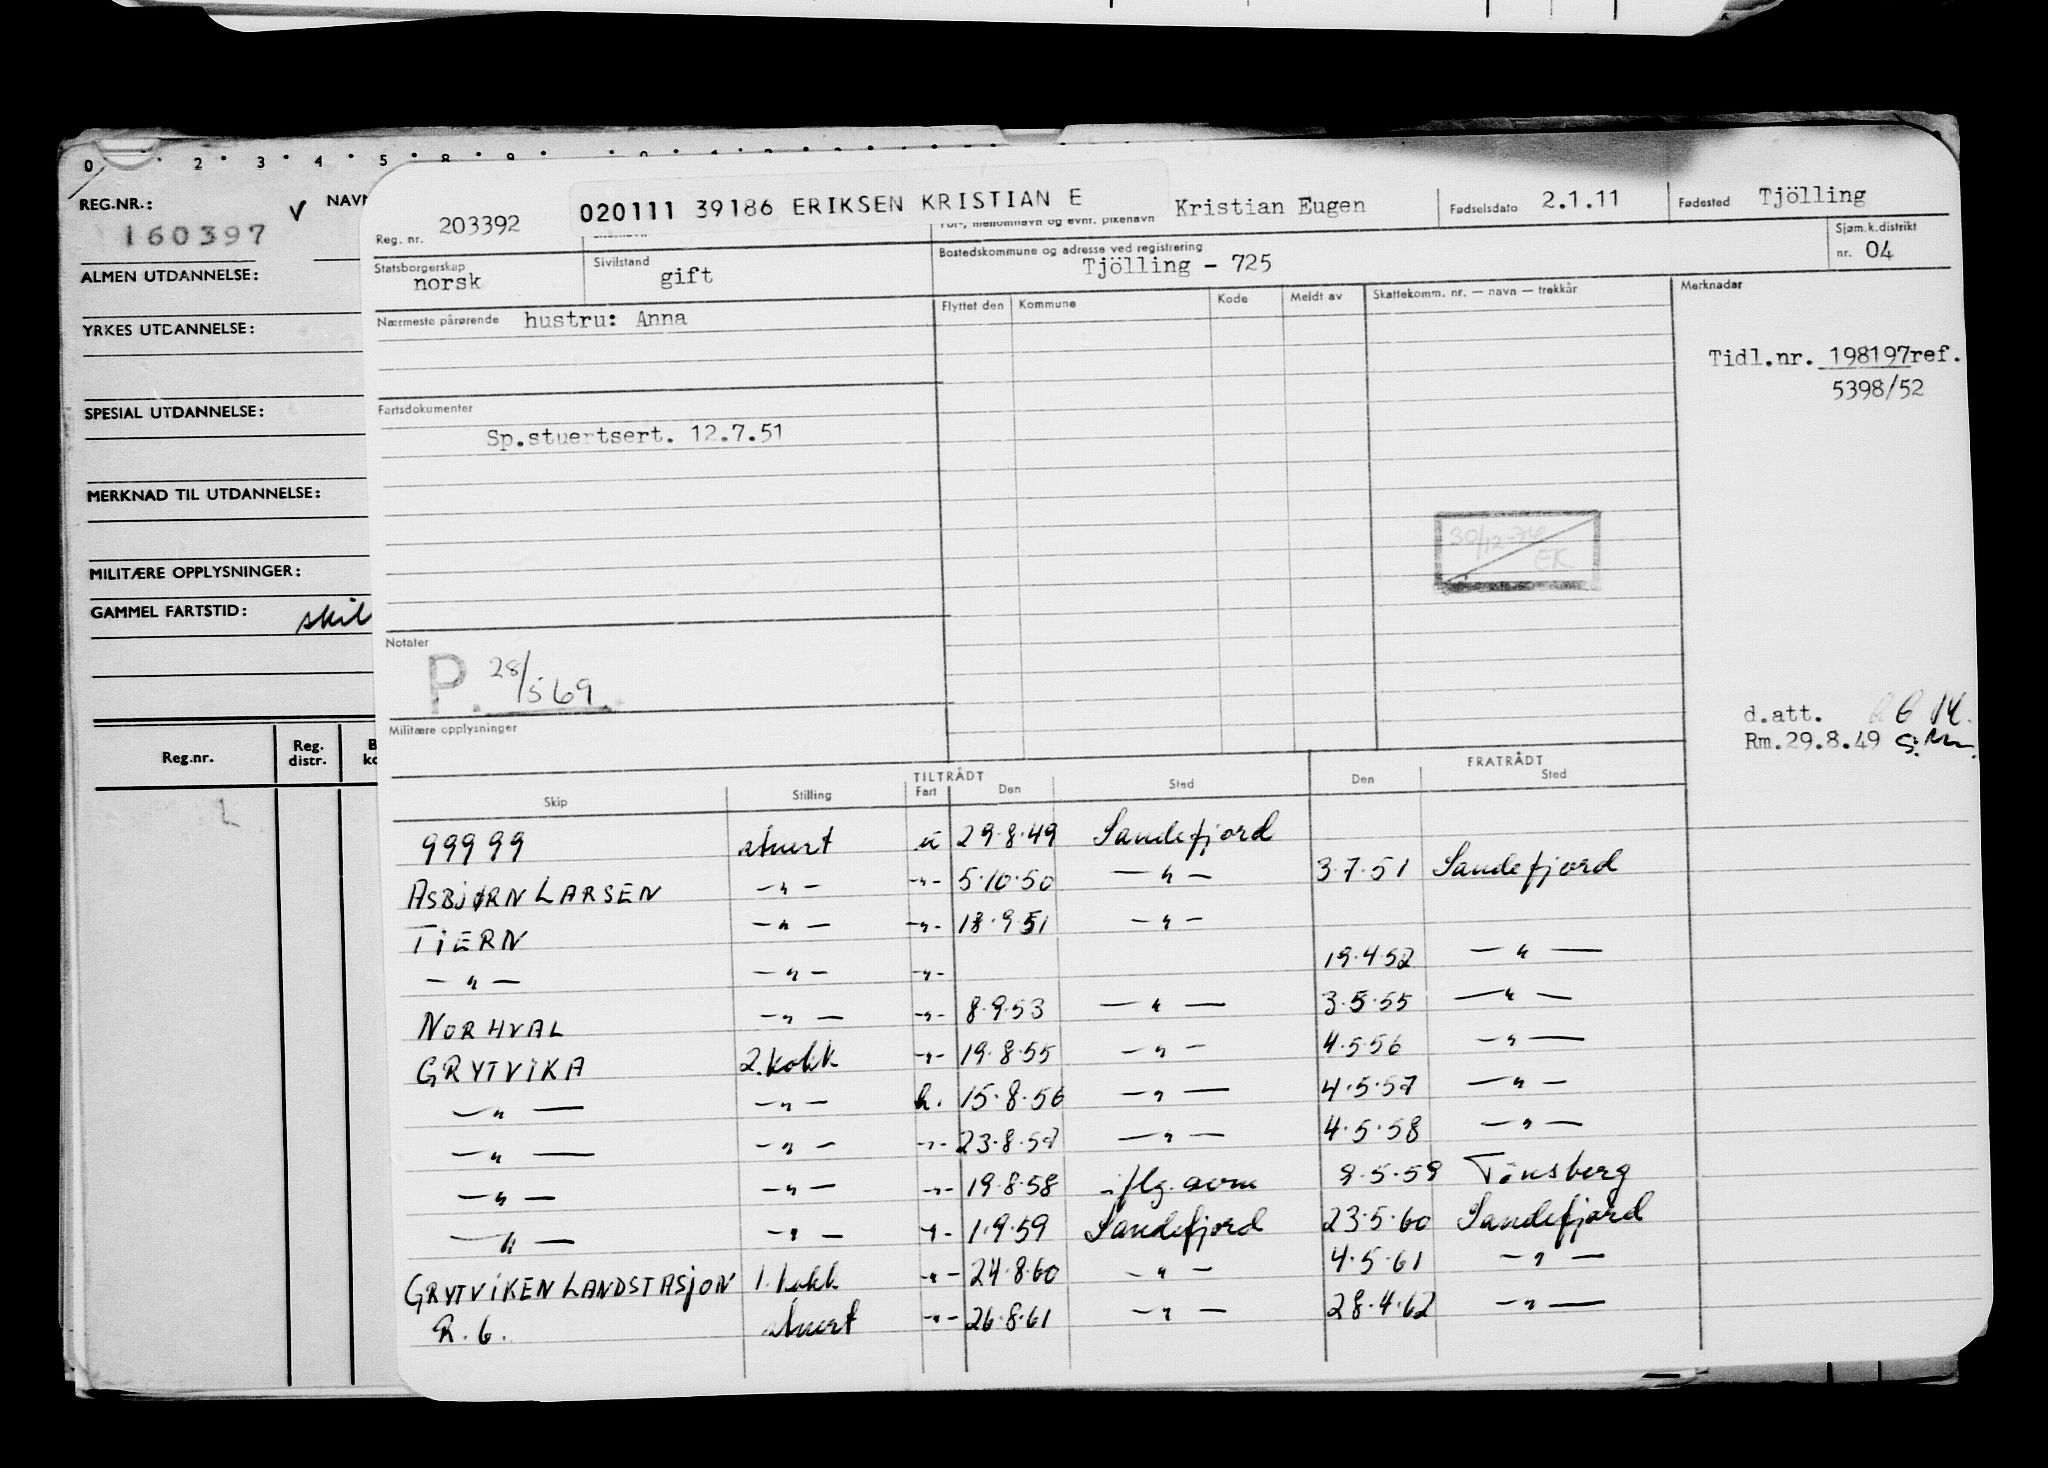 0 . 2 . 3 . 4 . 5 . 8 . 9 .
REG.NR.: V NAVN
160397
ALMEN UTDANNELSE:
YRKES UTDANNELSE:
SPESIAL UTDANNELSE:
MERKNAD TIL UTDANNELSE:
MILITÆRE OPPLYSNINGER:
GAMMEL FARTSTID: skil
Reg.nr. Reg. distr.
L
Reg. nr. 203392 020111 39186 ERIKSEN KRISTIAN E For-, mellomnavn og evnt. pikenavn Kristian Eugen Fødselsdato 2.1.11 Fødested Tjölling
Statsborgerskap norsk Sivilstand gift Bostedskommune og adresse ved registrering Tjölling - 725 Sjøm.k.distrikt nr. 04
Nærmeste pårørende hustru: Anna Flyttet den Kommune Kode Meldt av Skattekomm. nr. — navn — trekkår Merknader
Tidl.nr. 198197ref.
5398/52
Fartsdokumenter
Sp.stuertsert. 12.7.51
30/12-76
EK
Notater
P. 28/5 69
d.att.
Rm.29.8.49
Militære opplysninger
TILTRÅDT FRATRÅDT
Skip Stilling Fart Den Sted Den Sted
99999 stuert u 29.8.49 Sandefjord
ASBJØRN LARSEN —"— -"- 5.10.50 —"— 3.7.51 Sandefjord
TIERN —"— -"- 18.9.51 —"—
—"— —"— -"- 19.4.52 —"—
NORHVAL —"— -"- 8.9.53 —"— 3.5.55 —"—
GRYTVIKA 2.kokk -"- 19.8.55 —"— 4.5.56 —"—
—"— —"— h. 15.8.56 —"— 4.5.57 —"—
—"— —"— -"- 23.8.57 —"— 4.5.58 —"—
—"— —"— -"- 19.8.58 iflg. 9.5.59 Tønsberg
—"— —"— -"- 1.9.59 Sandefjord 23.5.60 Sandefjord
GRYTVIKEN LANDSTASJON 1.kokk -"- 24.8.60 —"— 4.5.61 —"—
R. 6. stuert -"- 26.8.61 —"— 28.4.62 —"—